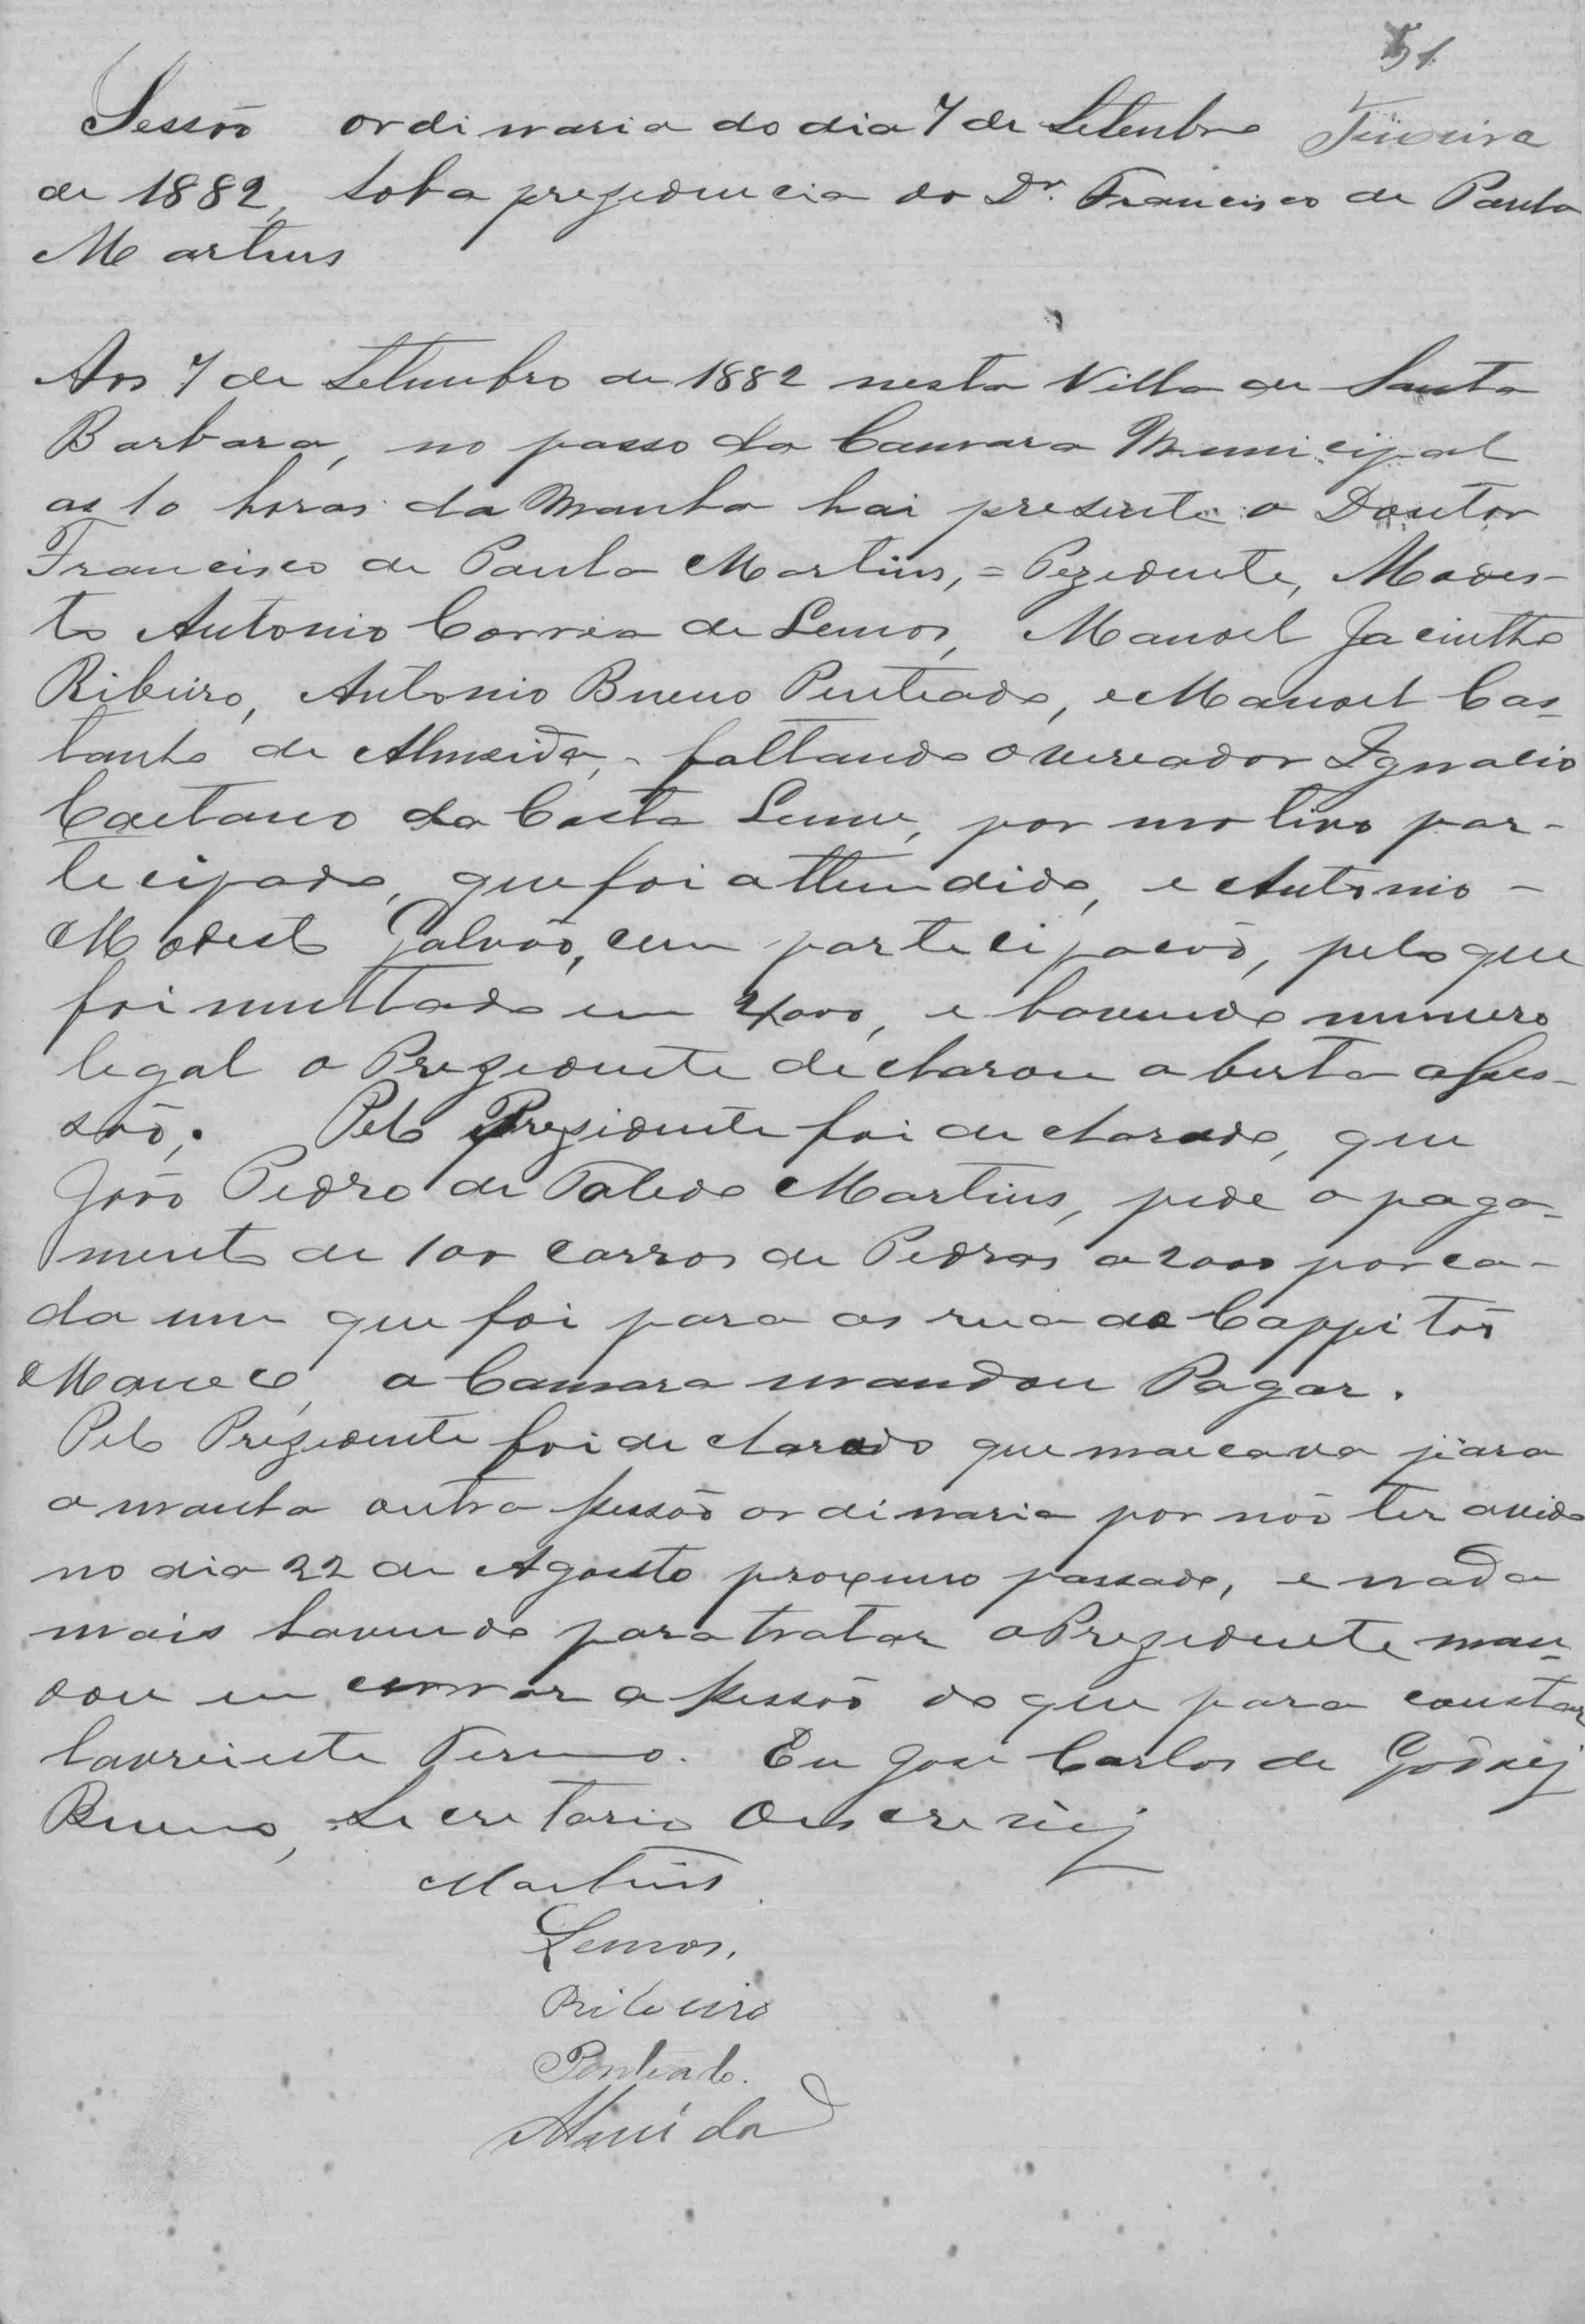 51
Teixeira
Sessão ordinaria do dia 7 de Setembro
de 1882, sob a prezidencia do Dr. Francisco de Paula
Martins
Aos 7 de Setembro de 1882 nesta Villa de Santa
Barbara, no passo da Camara Municipal
as 10 horas da manha hai presente o Doutor
Francisco de Paula Martins, = Pezidente, Modes-
to Antonio Correa de Lemos, Manoel Jacintho
Ribeiro, Antonio Bueno Penteado, e Manoel Cas-
tanho de Almeida, - faltando o vereador Ignacio
Caetano da Costa Leme, por motivo par-
ticipado, que foi attendido, e Antonio -
Modesto Galvão, cem participacão, pelo que
foi multado em 4000, e havendo numero
legal o Prezidente declarou aberta a ses-
são. Pelo Prezidente foi declarado, que
João Pedro de Toledo Martins, pede o paga-
mento de 100 carros de Pedras a 2000 por ca-
da um que foi para as rua do Cappitão
Manecо, a Camara mandou Pagar.
Pelo Prezidente foi declarado que marcava para
amanha outra sessão ordinaria por não ter avido
no dia 22 de Agosto proximo passado, e nada
mais havendo para tratar o Prezidente man-
dou em cerrar a sessão do que para constar
lavrei este Termo. Eu Jose Carlos de Godoij
Bueno, Secretario Oescrevij
Martins
Lemos.
Ribeiro
Penteado.
Almeida